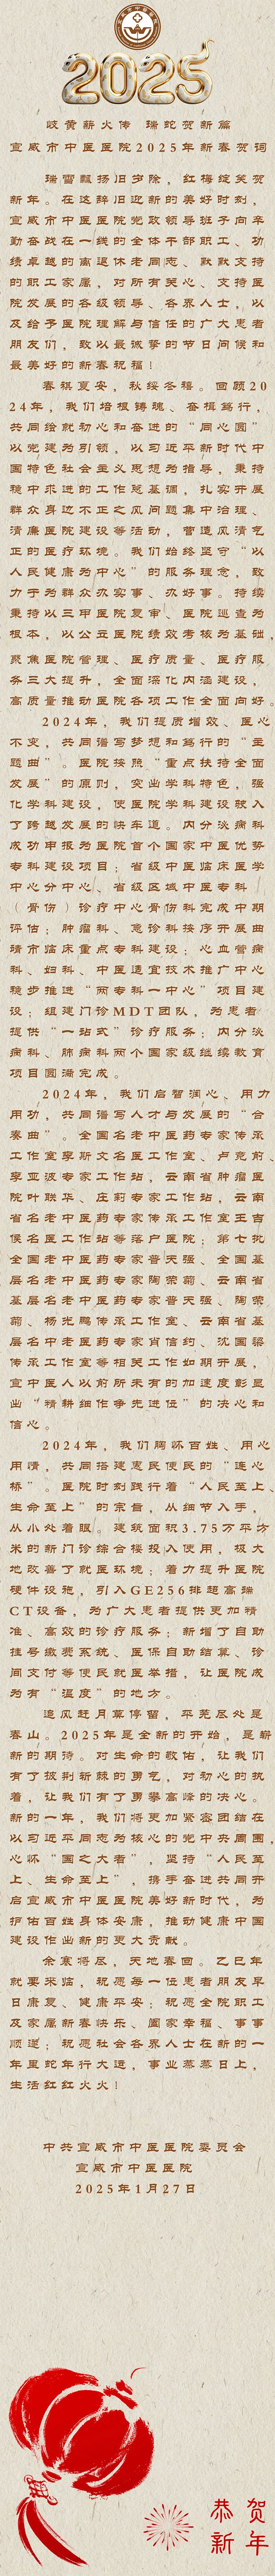 2025
岐黄薪火传 瑞蛇贺新篇
宣威市中医医院2025年新春贺词
瑞雪飘扬旧岁除，红梅绽笑贺
新年。在这辞旧迎新的美好时刻，
宣威市中医医院党政领导班子向辛
勤奋战在一线的全体干部职工、功
绩卓越的离退休老同志、默默支持
的职工家属，对所有关心、支持医
院发展的各级领导、各界人士，以
及给予医院理解与信任的广大患者
朋友们，致以最诚挚的节日问候和
最美好的新春祝福！
春祺夏安，秋绥冬禧。回顾20
24年，我们培根铸魂、奋楫笃行，
共同绘就初心和奋进的“同心圆”
以党建为引领，以习近平新时代中
国特色社会主义思想为指导，秉持
稳中求进的工作总基调，扎实开展
群众身边不正之风问题集中治理、
清廉医院建设等活动，营造风清气
正的医疗环境。我们始终坚守“以
人民健康为中心”的服务理念，致
力于为群众办实事、办好事。持续
秉持以三甲医院复审、医院巡查为
根本，以公立医院绩效考核为基础，
聚焦医院管理、医疗质量、医疗服
务三大提升，全面深化内涵建设，
高质量推动医院各项工作全面向好。
2024年，我们提质增效、医心
不变，共同谱写梦想和笃行的“主
题曲”。医院按照“重点扶持全面
发展”的原则，突出学科特色，强
化学科建设，使医院学科建设驶入
了跨越发展的快车道。内分泌病科
成功申报为医院首个国家中医优势
专科建设项目；省级中医临床医学
中心分中心、省级区域中医专科
（骨伤）诊疗中心骨伤科完成中期
评估；肿瘤科、急诊科按序开展曲
靖市临床重点专科建设；心血管病
科、妇科、中医适宜技术推广中心
稳步推进“两专科一中心”项目建
设；组建门诊MDT团队，为患者
提供“一站式”诊疗服务；内分泌
病科、肺病科两个国家级继续教育
项目圆满完成。
2024年，我们启智润心、用力
用功，共同谱写人才与发展的“合
奏曲”。全国名老中医药专家传承
工作室李斯文名医工作室、卢竞前、
李亚波专家工作站，云南省肿瘤医
院叶联华、庄莉专家工作站，云南
省名老中医药专家传承工作室王吉
侯名医工作站等落户医院；第七批
全国老中医药专家普天强、全国基
层名老中医药专家陶荣菊、云南省
基层名老中医药专家普天强、陶荣
菊、杨光鹏传承工作室、云南省基
层名中老医药专家肖信约、沈国梁
传承工作室等相关工作如期开展，
宣中医人以前所未有的加速度彰显
出“精耕细作争先进位”的决心和
信心。
2024年，我们胸怀百姓、用心
用情，共同搭建惠民便民的“连心
桥”。医院时刻践行着“人民至上、
生命至上”的宗旨，从细节入手，
从小处着眼。建筑面积3.75万平方
米的新门诊综合楼投入使用，极大
地改善了就医环境；着力提升医院
硬件设施，引入GE256排超高端
CT设备，为广大患者提供更加精
准、高效的诊疗服务；新增了自助
挂号缴费系统、医保自助结算、诊
间支付等便民就医举措，让医院成
为有“温度”的地方。
追风赶月莫停留，平芜尽处是
春山。2025年是全新的开始，是崭
新的期待。对生命的敬佑，让我们
有了披荆斩棘的勇气，对初心的执
着，让我们有了勇攀高峰的决心。
新的一年，我们将更加紧密团结在
以习近平同志为核心的党中央周围，
心怀“国之大者”，坚持“人民至
上、生命至上”，携手奋进共同开
启宣威市中医医院美好新时代，为
护佑百姓身体安康，推动健康中国
建设作出新的更大贡献。
余寒将尽，天地春回。乙巳年
就要来临，祝愿每一位患者朋友早
日康复、健康平安；祝愿全院职工
及家属新春快乐、阖家幸福、事事
顺遂；祝愿社会各界人士在新的一
年里蛇年行大运，事业蒸蒸日上，
生活红红火火！
中共宣威市中医医院委员会
宣威市中医医院
2025年1月27日
恭贺
新年